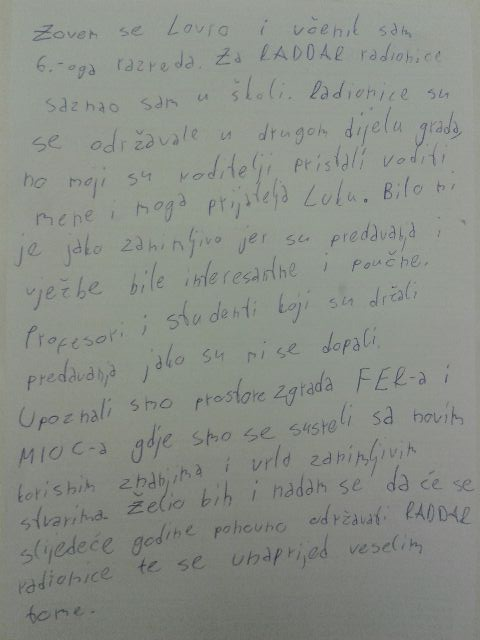 Zovem se Lovro i učenik sam
6.-oga razreda. Za RADDAR radionice
saznao sam u školi. Radionice su
se održavale u drugom dijelu grada,
no moji su roditelji pristali voditi
mene i moga prijatelja Luku. Bilo mi
je jako zanimljivo jer su predavanja i
vježbe bile interesantne i poučne.
Profesori i studenti koji su držali
predavanja jako su mi se dopali.
Upoznali smo prostore zgrada FER-a i
MIOC-a gdje smo se susreli sa novim
korisnim znanjima i vrlo zanimljivim
stvarima. Želio bih i nadam se da će se
slijedeće godine ponovno održavati RADDAR
radionice te se unaprijed veselim
tome.